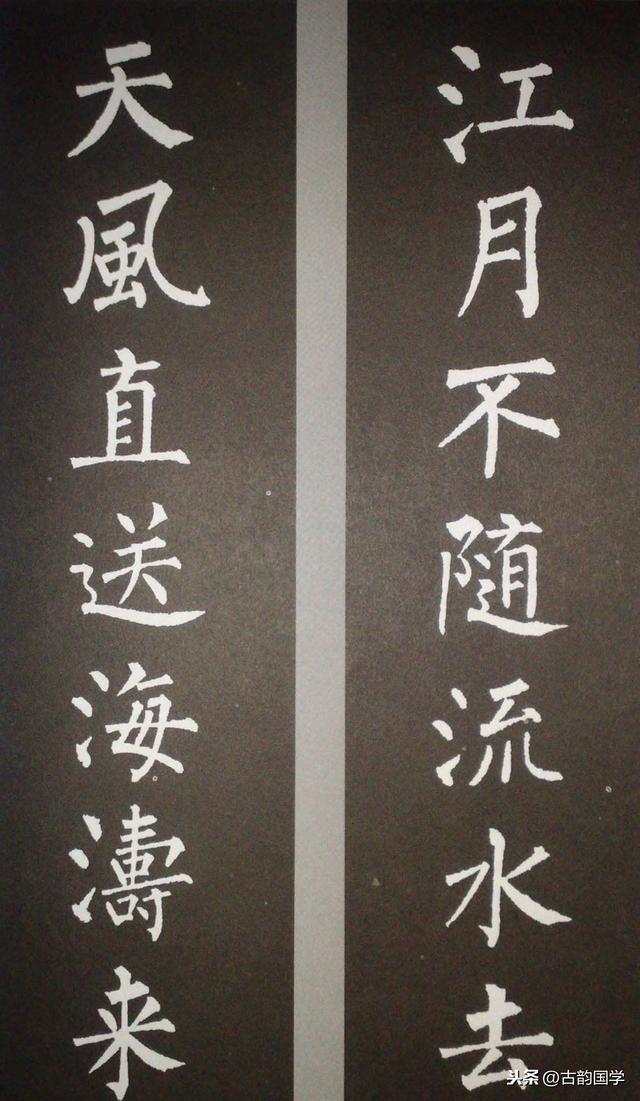 江月不随流水去
天風直送海濤来
头条@古韵国学